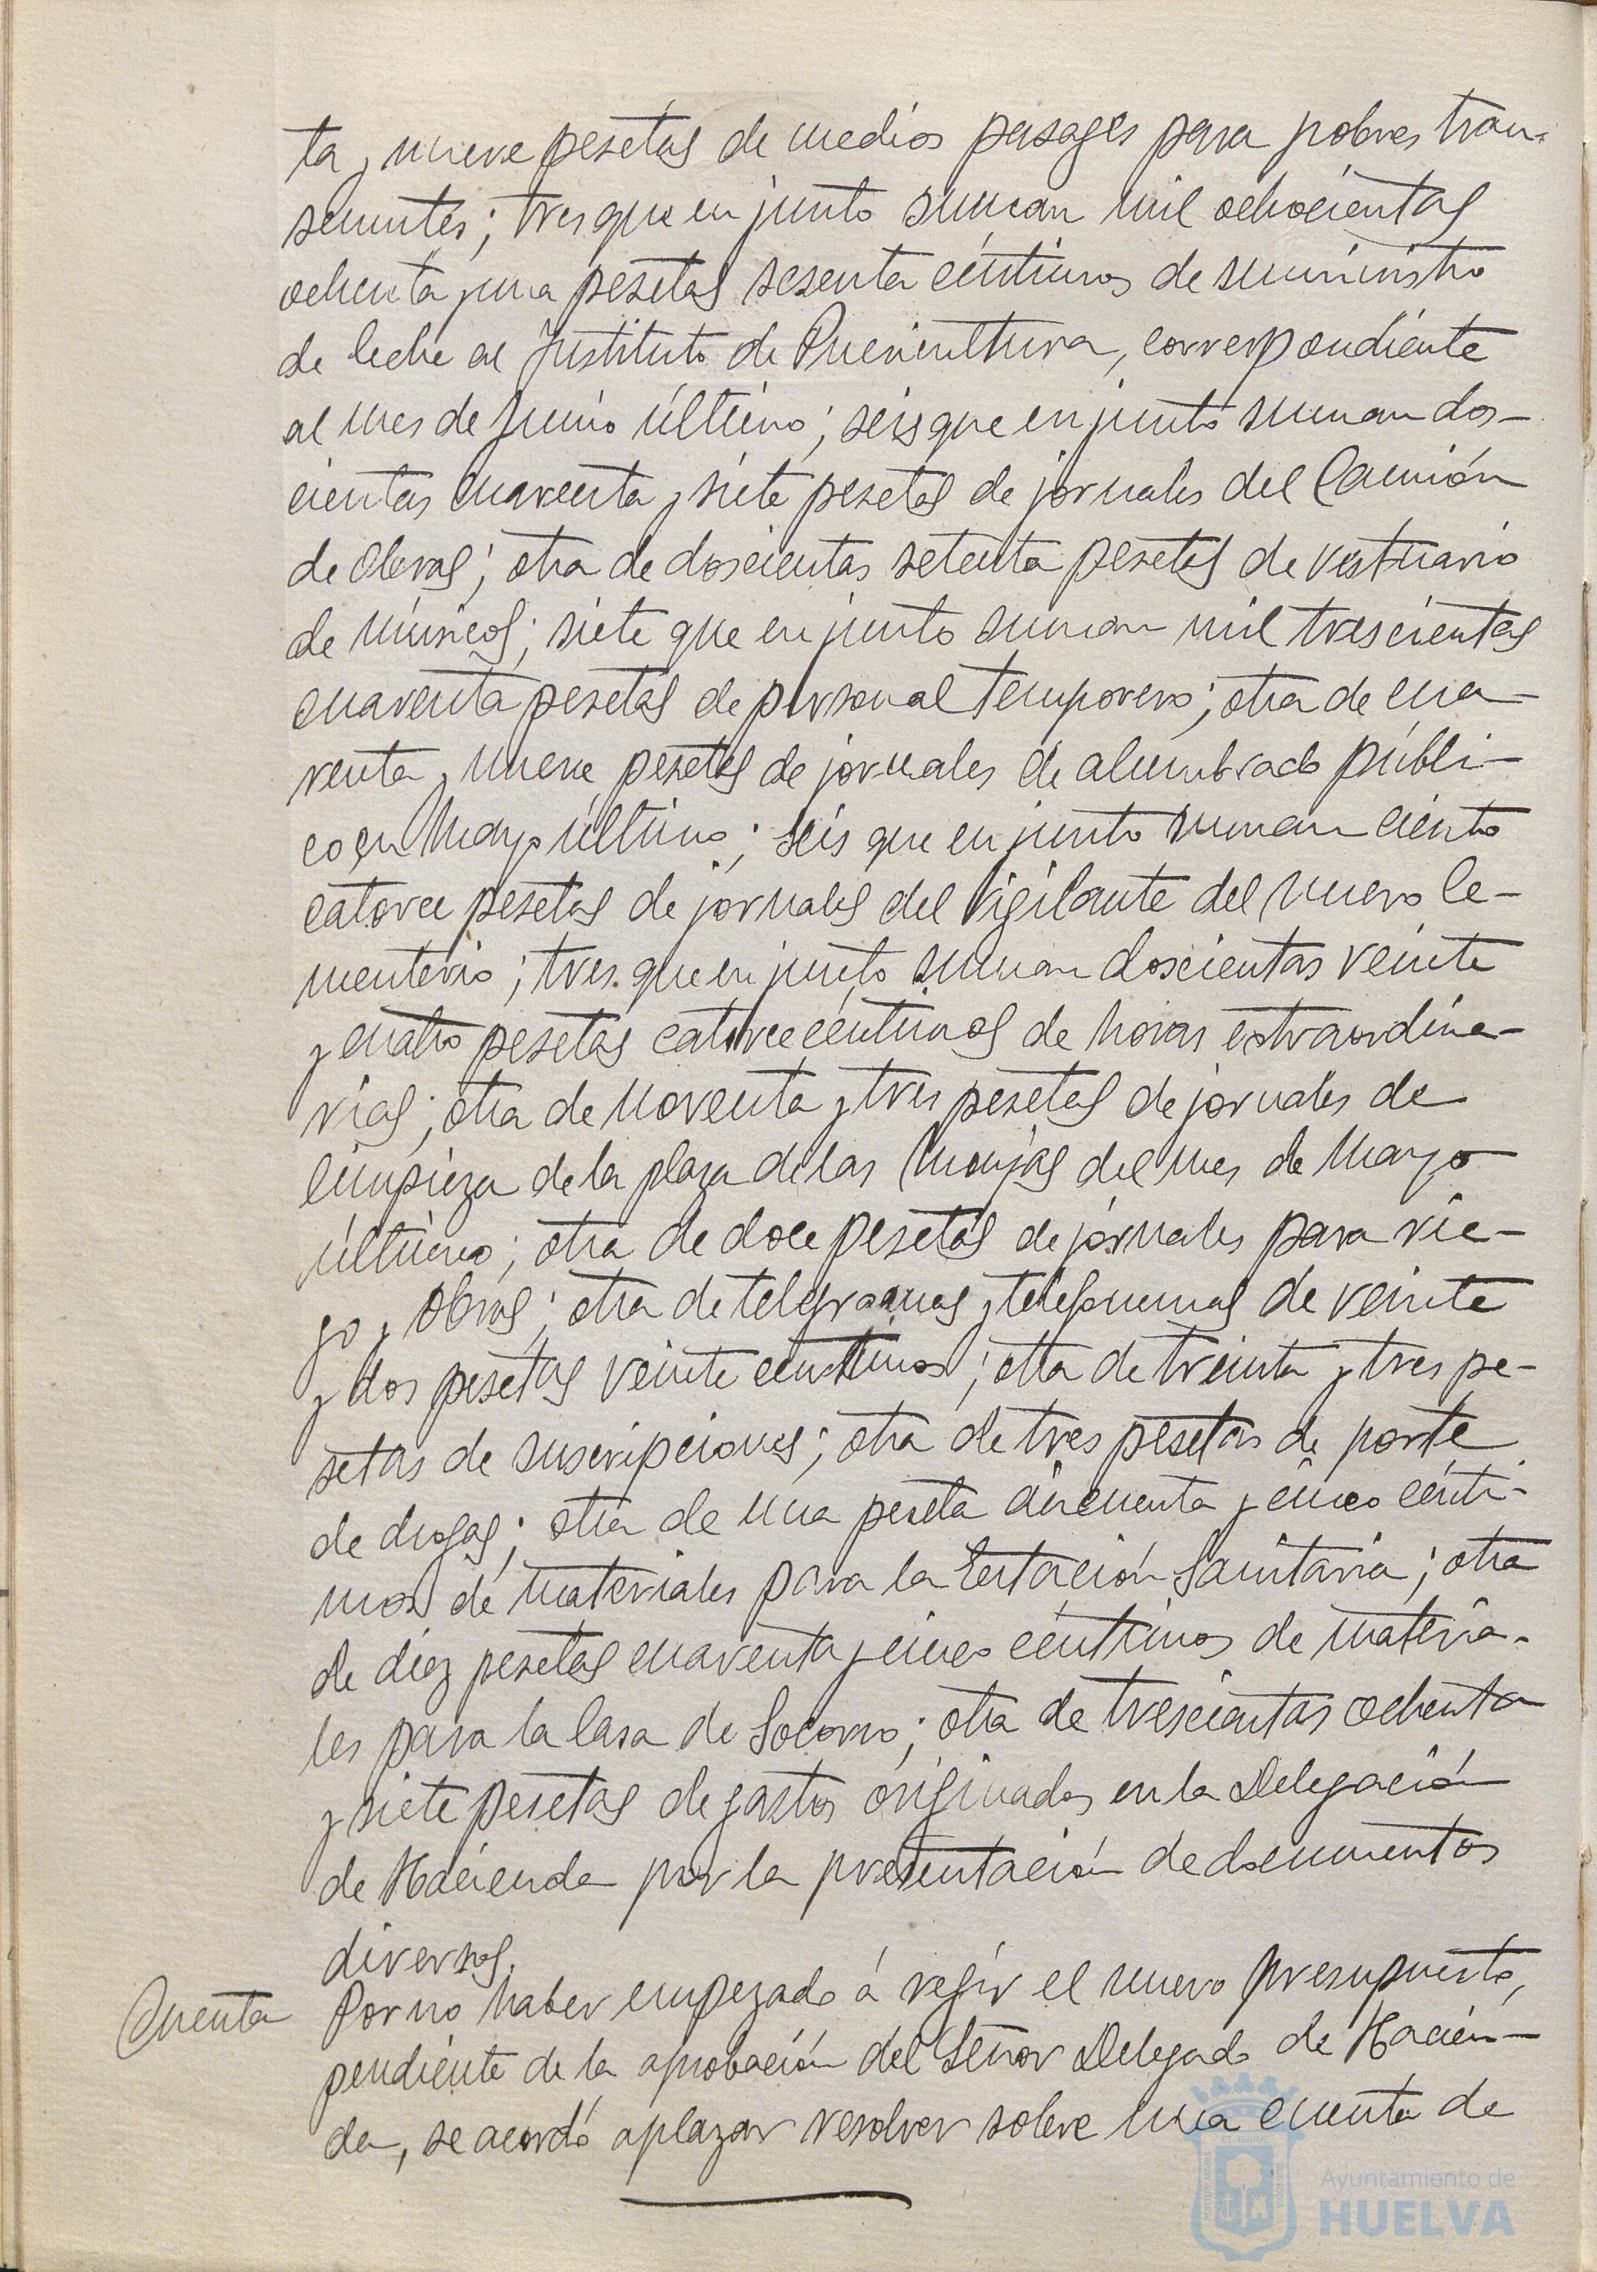 ta y nueve pesetas de medios pasages para pobres tran-
seuntes; tres que en junto suman mil ochocientas
ochenta y una pesetas sesenta céntimos de suministro
de leche al Instituto de Puericultura, correspondiente
al mes de Junio último; seis que en junto suman dos-
cientas cuarenta y siete pesetas de jornales del Camión
de Obras; otra de doscientas setenta pesetas de vestuario
de músicos; siete que en junto suman mil trescientas
cuarenta pesetas de personal temporero; otra de cua-
renta y nueve pesetas de jornales de alumbrado públi-
co en Mayo último; seis que en junto suman ciento
catorce pesetas de jornales del Vigilante del nuevo Ce-
menterio; tres que en junto suman doscientas veinte
y cuatro pesetas catorce céntimos de horas extraordina-
rias; otra de noventa y tres pesetas de jornales de
limpieza de la plaza de las Monjas del mes de Mayo
último; otra de doce pesetas de jornales para rie-
go y Obras; otra de telegramas y telefonemas de veinte
y dos pesetas veinte centimos; otra de treinta y tres pe-
setas de suscripciones; otra de tres pesetas de porte
de drogas; otra de una peseta cincuenta y cinco cénti-
mos de materiales para la Estación Sanitaria; otra
de diez pesetas cuarenta y cinco céntimos de materia-
les para la Casa de Socorro; otra de trescientas ochenta
y siete pesetas de gastos originados en la Delegación
de Hacienda por la presentación de documentos
diversos.
Cuenta Por no haber empezado á regir el nuevo presupuesto,
pendiente de la aprobación del Señor Delegado de Hacien-
da, se acordó aplazar resolver sobre una cuenta de
Ayuntamiento de
HUELVA